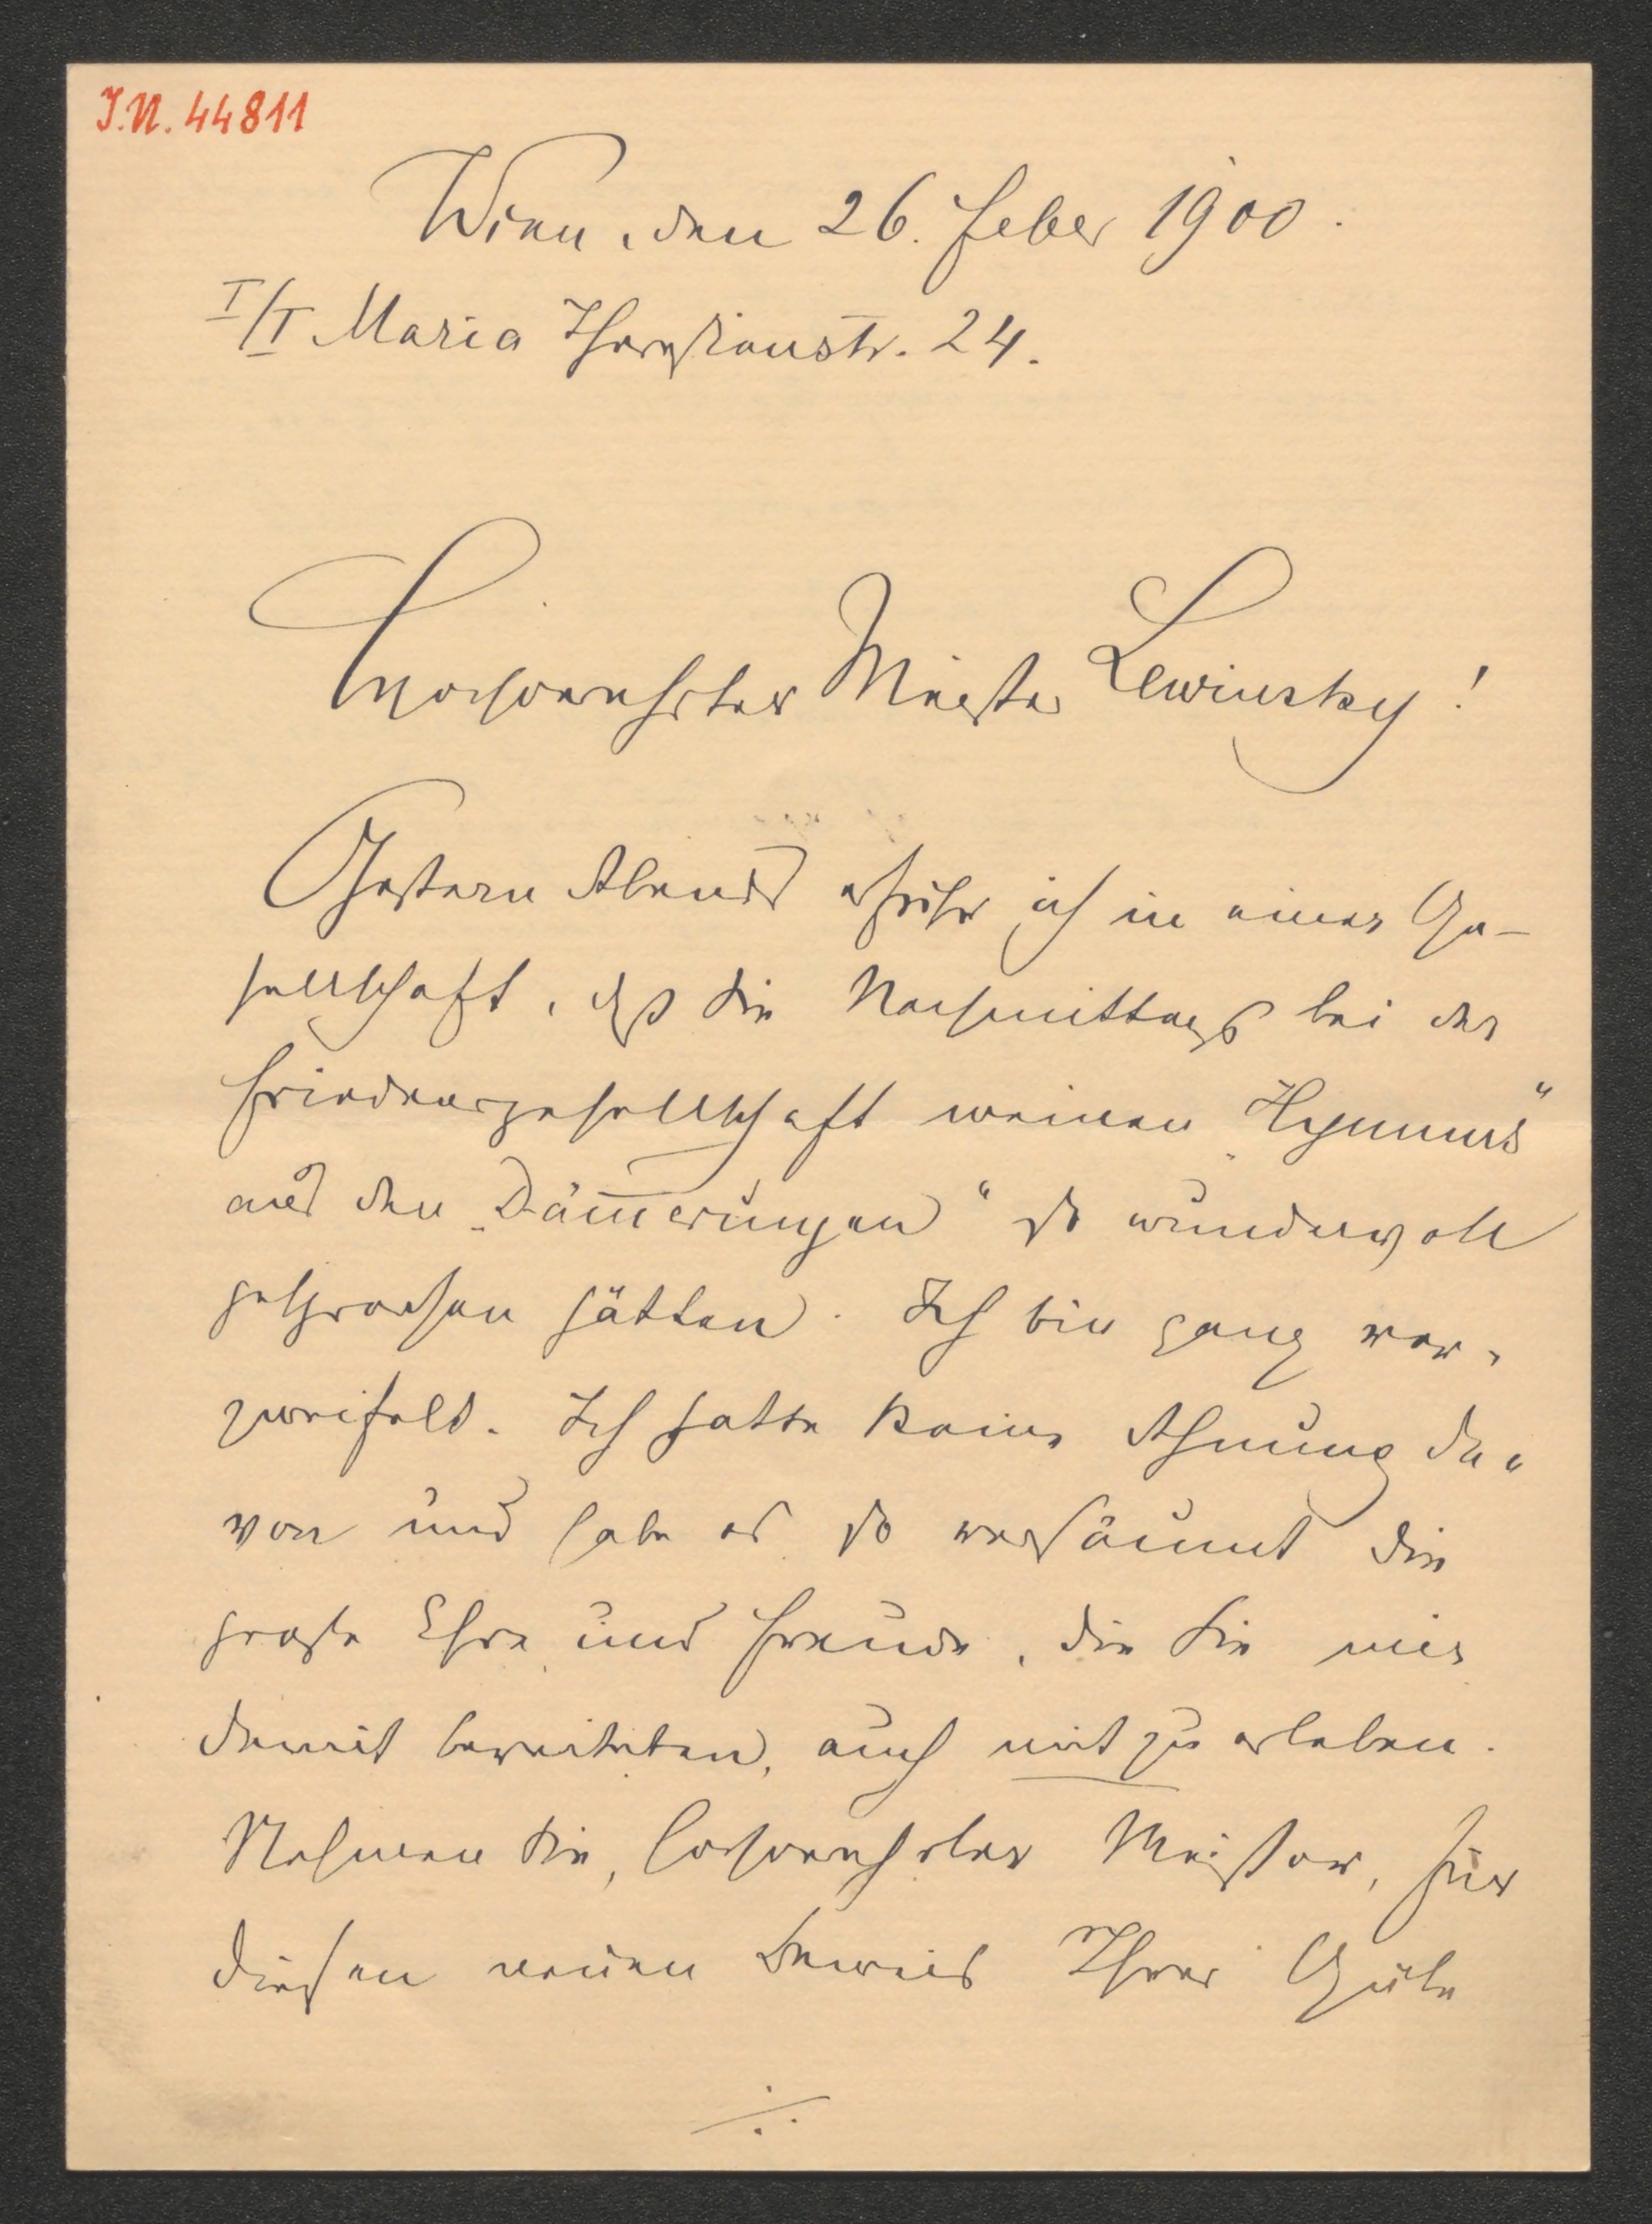 I.N. 44811
Wien, den 26. Feber 1900.
I/I Maria Theresienstr. 24.
Hochverehrter Meister Lewinsky!
Gestern Abends erfuhr ich in einer Ge-
sellschaft, daß Sie Nachmittags bei der
Friedensgesellschaft meinen „Hymnus“
aus den „Däm̅erungen“ so wundervoll
gesprochen hätten. Ich bin ganz ver-
zweifelt. Ich hatte keine Ahnung da-
von und habe es so versäumt die
große Ehre und Freude, die Sie mir
damit bereiteten, auch mit zu erleben.
Nehmen Sie, hochverehrter Meister, für
diesen neuen Beweis Ihrer Güte
./.